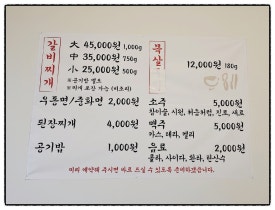 갈비찌개
大 45,000원 1,000g
中 35,000원 750g
小 25,000원 500g
※공기밥 별도
※미역 포장 가능 (비조리)
목살
12,000원 180g
우동면/중화면 2,000원
된장찌개 4,000원
공기밥 1,000원
소주 5,000원
참이슬, 시원, 처음처럼, 진로, 새로
맥주 5,000원
카스, 테라, 켈리
음료 2,000원
콜라, 사이다, 환타, 탄산수
미리 예약해 주시면 바로 드실 수 있도록 준비하겠습니다.